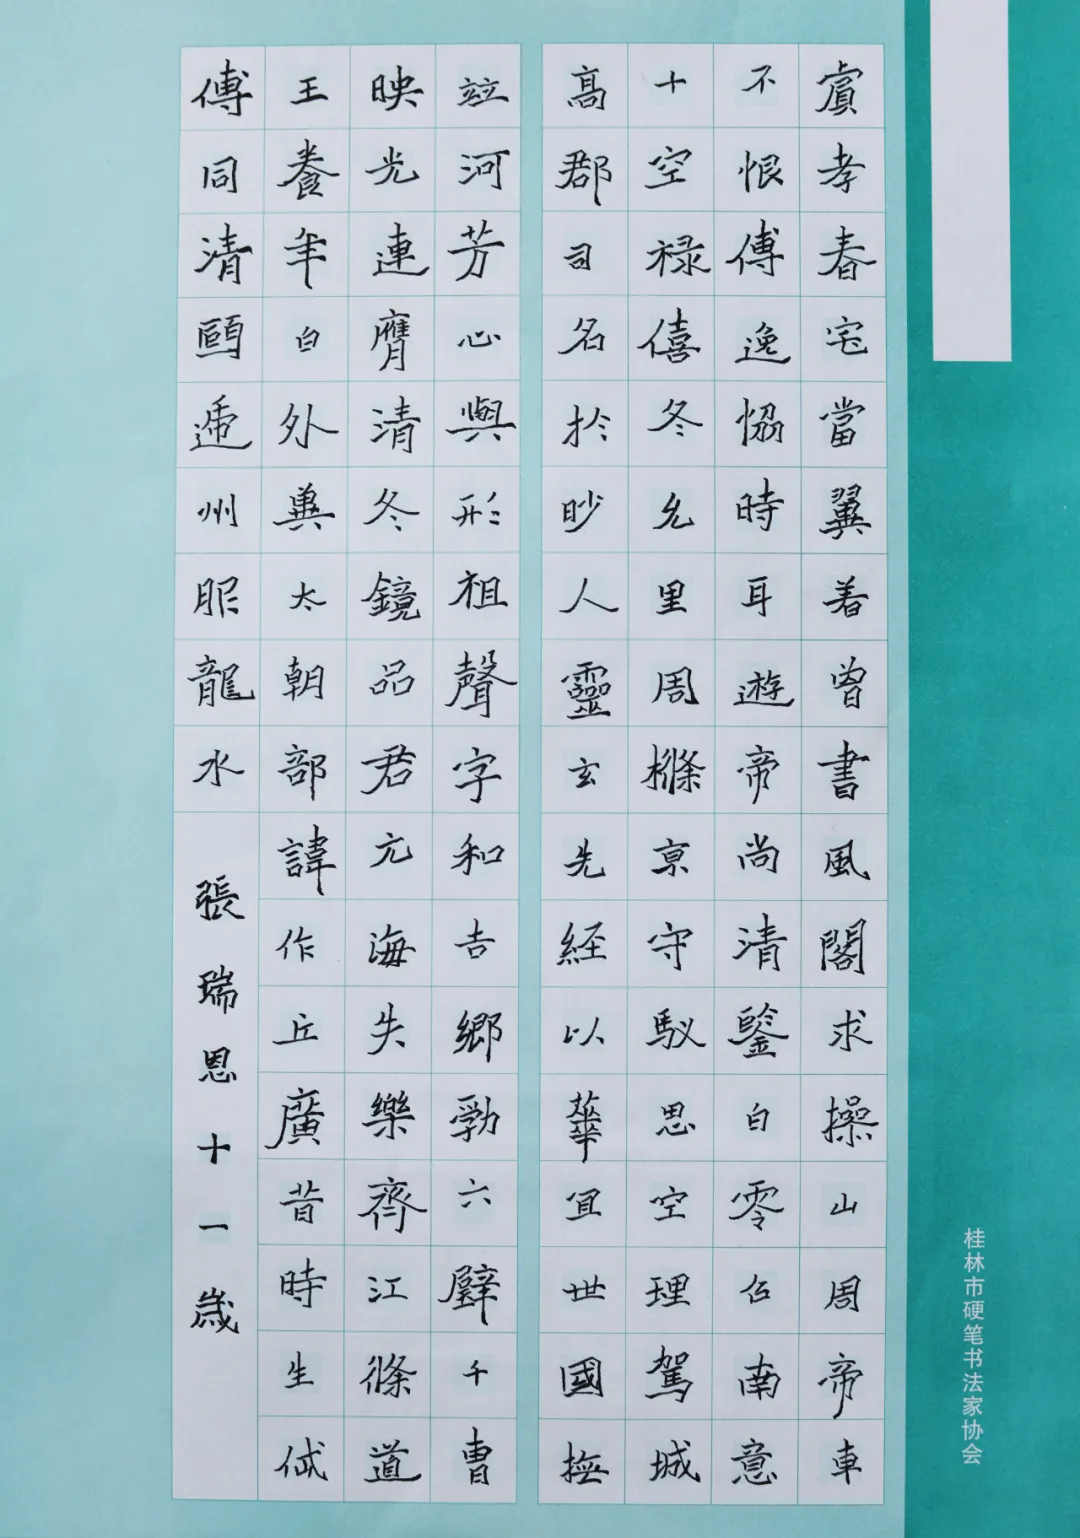 賓孝春宅當翼着曾書風閣求操山周帝車
不恨傅逸恊時耳遊帝尚清鑒白零似南意
十空祿僖冬允里周條京守馭思空理駕城
高郡司名於眇人靈玄先経以華宜世國撫
竝河芳心與形祖聲字和吉鄉勁六壁千曹
映光連膺清冬鏡品君亢海失樂齊江條道
王養年白外與太朝部諱作丘廣昔時生
傅同清頤遞州服龍水
張瑞恩十一歲
桂林市硬笔书法家协会